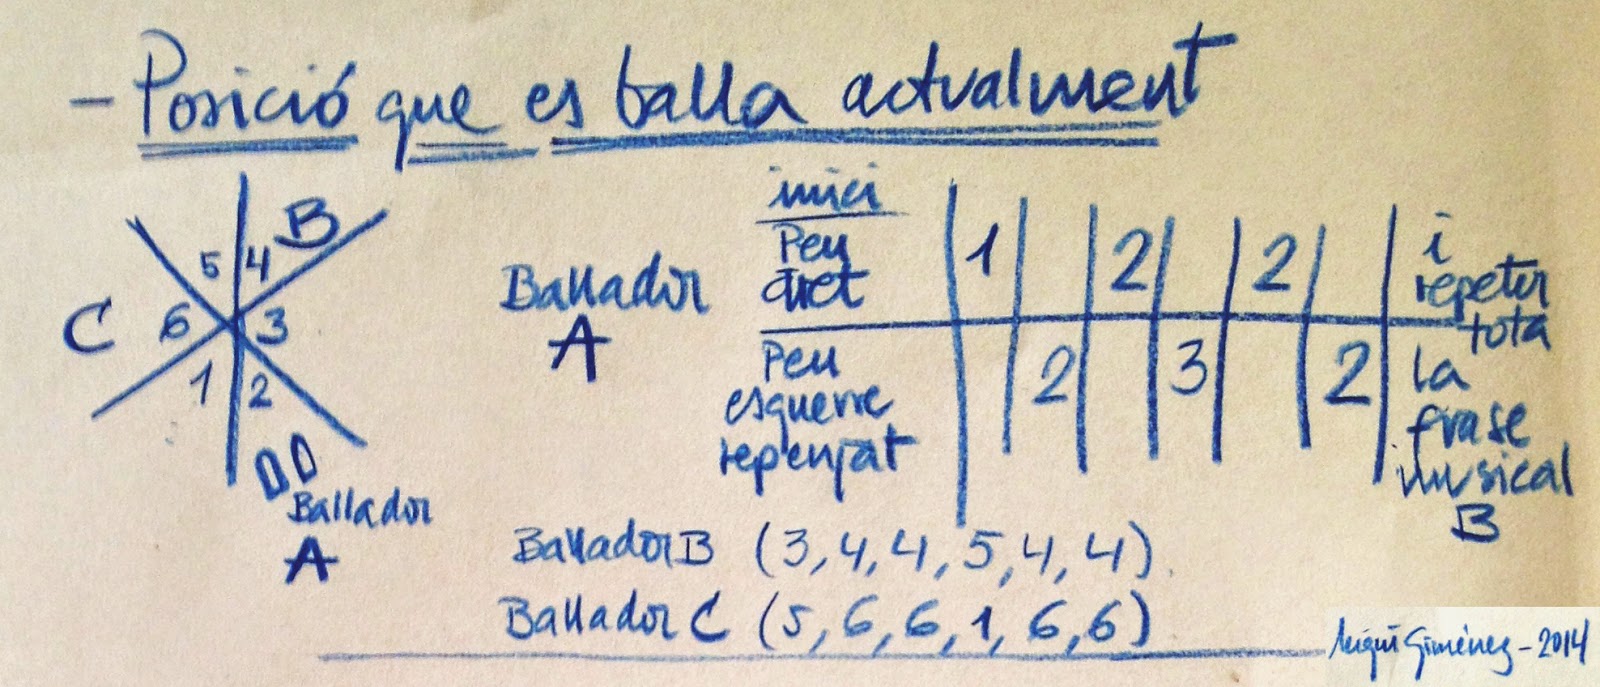 - Posició que es balla actualment
5 4 B
C 6 3
1 2
Ballador
A
Ballador
A
inici
Peu
dret
1 2 2
Peu
esquerre
repenjat
2 3 2
i
repetir
tota
la
frase
musical
B
Ballador B (3, 4, 4, 5, 4, 4)
Ballador C (5, 6, 6, 1, 6, 6)
Giménez - 2014